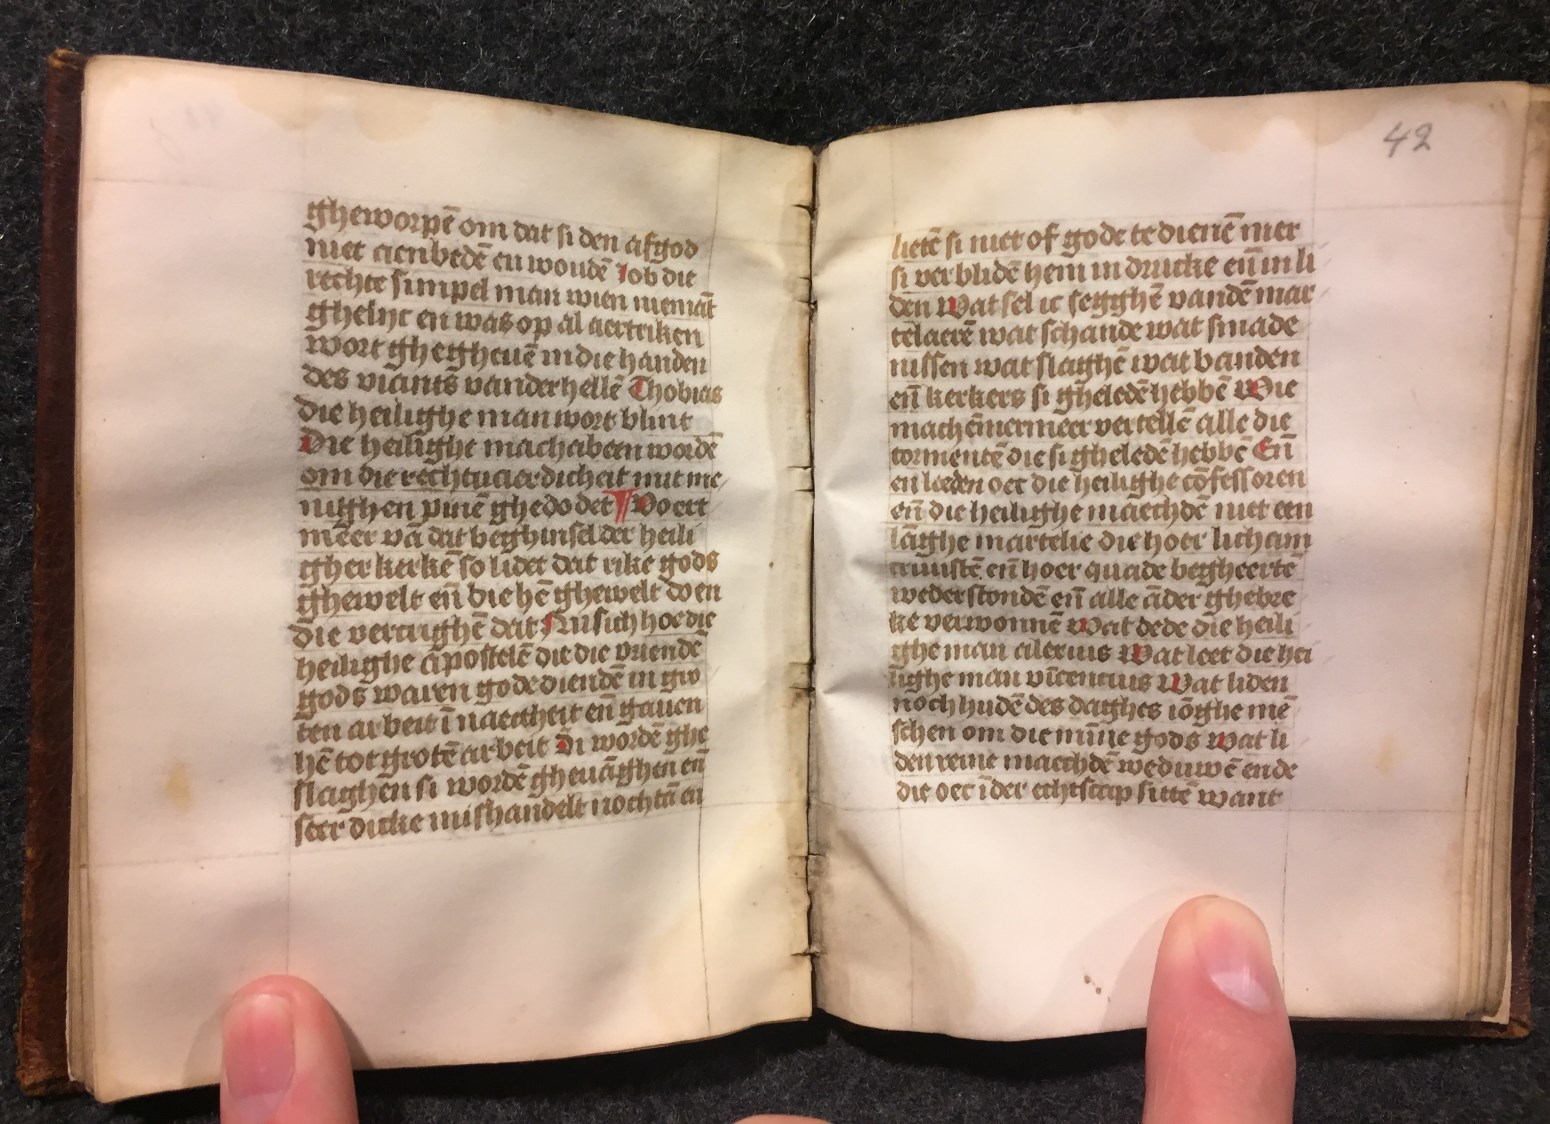 gheworpē om dat si den afgod
niet aenbedē en woudē Job die
rechte simpel man wien niemāt
ghelijc en was op al aertriken
wort ghegheuē in die handen
des viants vander hellē Thobias
die heilighe man wort blint
Die heilighe machabeen wordē
om die rechtuaerdicheit mit me
nighen pinē ghedodet ¶ Voert
meer vā dat beghinsel der heili
gher kerkē so lidet dat rike gods
ghewelt eñ die hē ghewelt doen
die vercrighē dat Nu sich hoe die
heilighe apostelē die die vriende
gods waren gode diendē in gro
ten arbeit ī naectheit eñ gauen
hē tot grotē arbeit Si wordē ghe
slaghen si wordē gheuāghen eñ
seer dicke mishandelt nochtā en
42
lietē si niet of gode te dienē mer
si verblidē hem in drucke eñ in li
den Wat sel ic segghē vandē mar
telaerē wat schande wat smade
nissen wat slaghē wat banden
eñ kerkers si gheledē hebbē Wie
mach ēmermeer vertellē alle die
tormentē die si gheledē hebbē Eñ
en leeden oec die heilighe cōfessoren
eñ die heilighe maechdē niet een
lāghe martelie die hoer licham
cruustē eñ hoer quade begheerte
wederstondē eñ alle āder ghebre
kē verwonnē Wat dede die heili
ghe man alexius Wat leet die hei
lighe man vīcencius Wat liden
noch hudē des daghes iōghe mē
schen om die mīne gods Wat li
den reine maechdē weduwē ende
die oec ī der echtscap sittē want